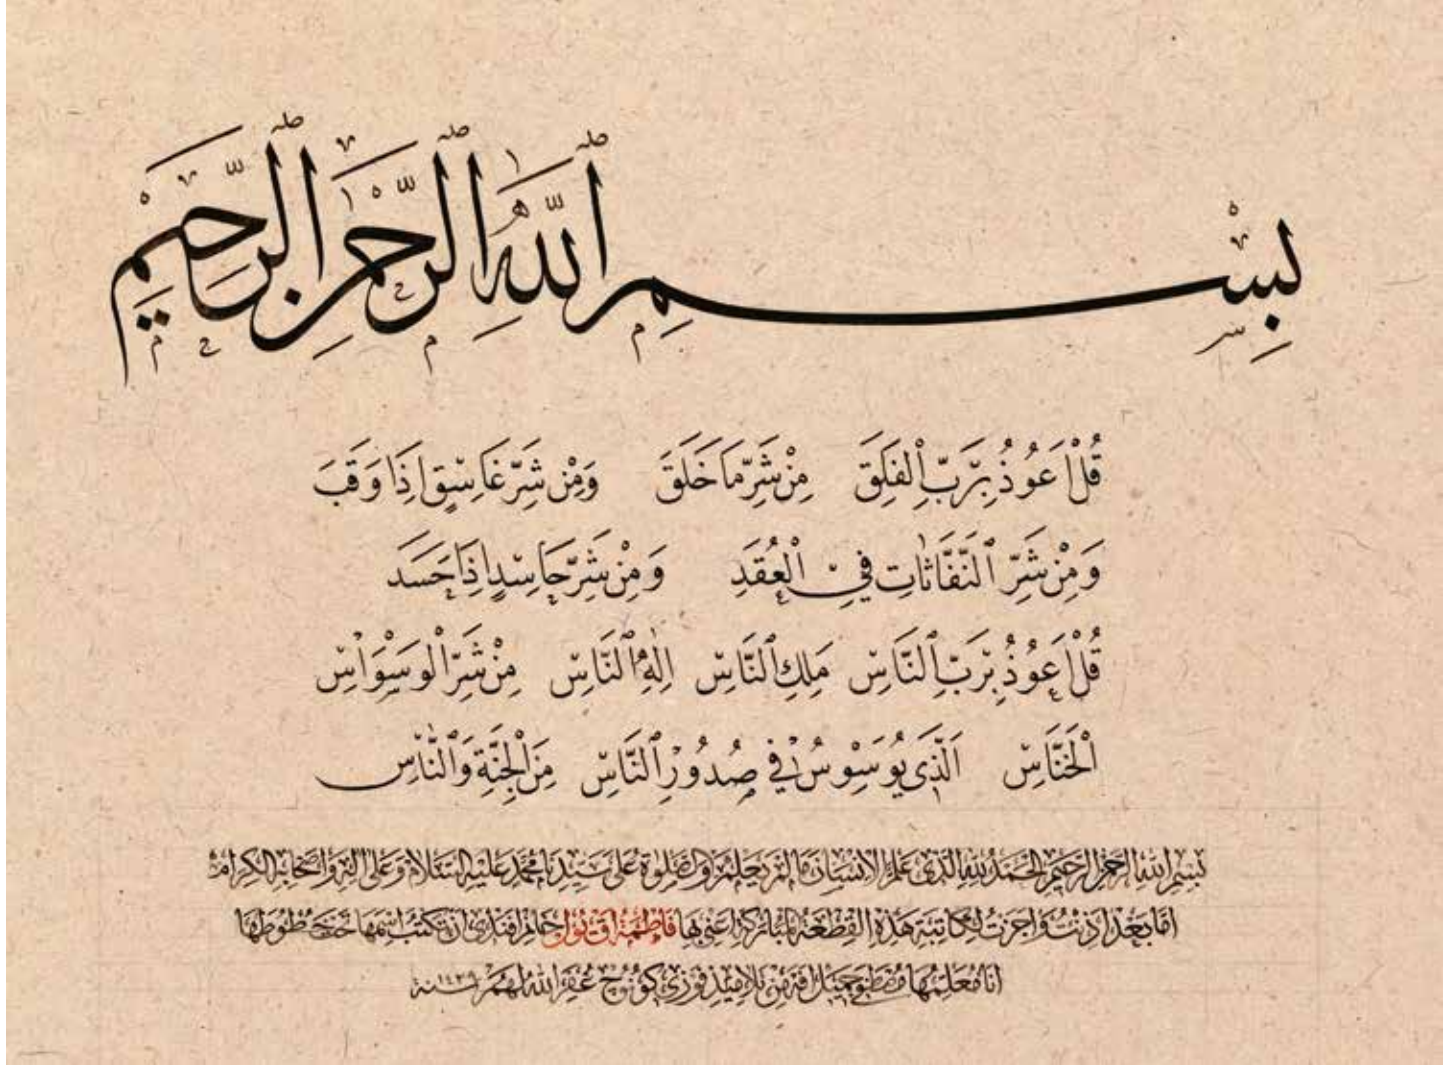 بِسْمِ ٱللّٰهِ ٱلرَّحْمٰنِ ٱلرَّحِيمِ
قُلْ اَعُوذُ بِرَبِّ ٱلْفَلَقِ مِنْ شَرِّ مَا خَلَقَ وَمِنْ شَرِّ غَاسِقٍ اِذَا وَقَبَ
وَمِنْ شَرِّ ٱلنَّفَّاثَاتِ فِي ٱلْعُقَدِ وَمِنْ شَرِّ حَاسِدٍ اِذَا حَسَدَ
قُلْ اَعُوذُ بِرَبِّ ٱلنَّاسِ مَلِكِ ٱلنَّاسِ اِلٰهِ ٱلنَّاسِ مِنْ شَرِّ ٱلْوَسْوَاسِ
ٱلْخَنَّاسِ اَلَّذِي يُوَسْوِسُ فِي صُدُورِ ٱلنَّاسِ مِنَ ٱلْجِنَّةِ وَٱلنَّاسِ
بسم الله الرحمن الرحيم الحمد لله الذى علم الانسان ما لم يعلم والصلوة على سيدنا محمد عليه السلام وعلى اله واصحابه الكرام
اما بعد اذنت واجزت لكاتبة هذه القطعة المباركة اعنى بها فاطمة خانم افندى ان تكتب اسمها تحت خطوطها
انا معلمها من تلاميذ فوزى كونوچ غفر الله لهم سنة ١٤٣٩